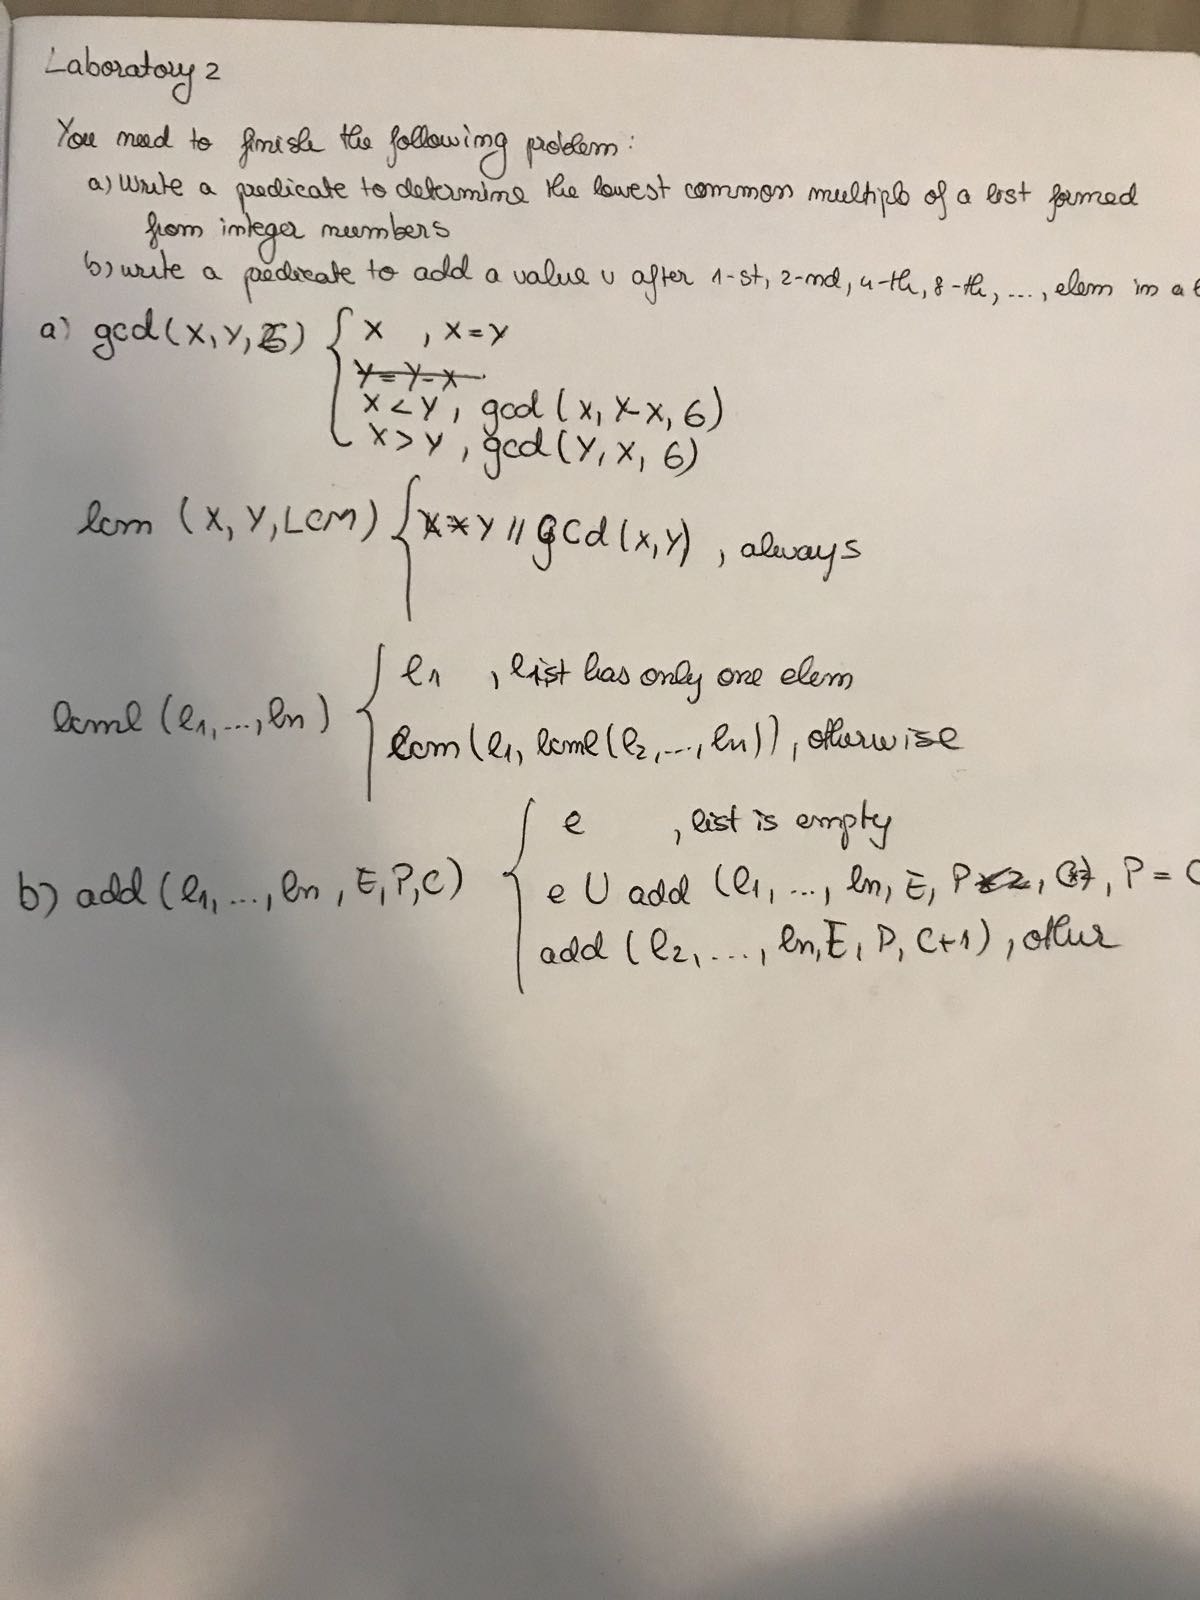 Laboratory 2
You need to finish the following problem:
a) Write a predicate to determine the lowest common multiple of a list formed
from integer numbers
b) write a predicate to add a value v after 1-st, 2-nd, 4-th, 8-th, ..., elem in a
a) gcd(X, Y, G) { X , X=Y
Y=Y-X
X<Y, gcd(X, Y-X, G)
X>Y, gcd(Y, X, G)
lcm (X, Y, LCM) { X*Y // gcd(X,Y) , always
lcml (l1, ..., ln) { l1 , list has only one elem
lcm(l1, lcml(l2, ..., ln)), otherwise
b) add(l1, ..., ln, E, P, C) { e , list is empty
e U add (l1, ..., ln, E, P*2, , P = C
add (l2, ..., ln, E, P, C+1), other